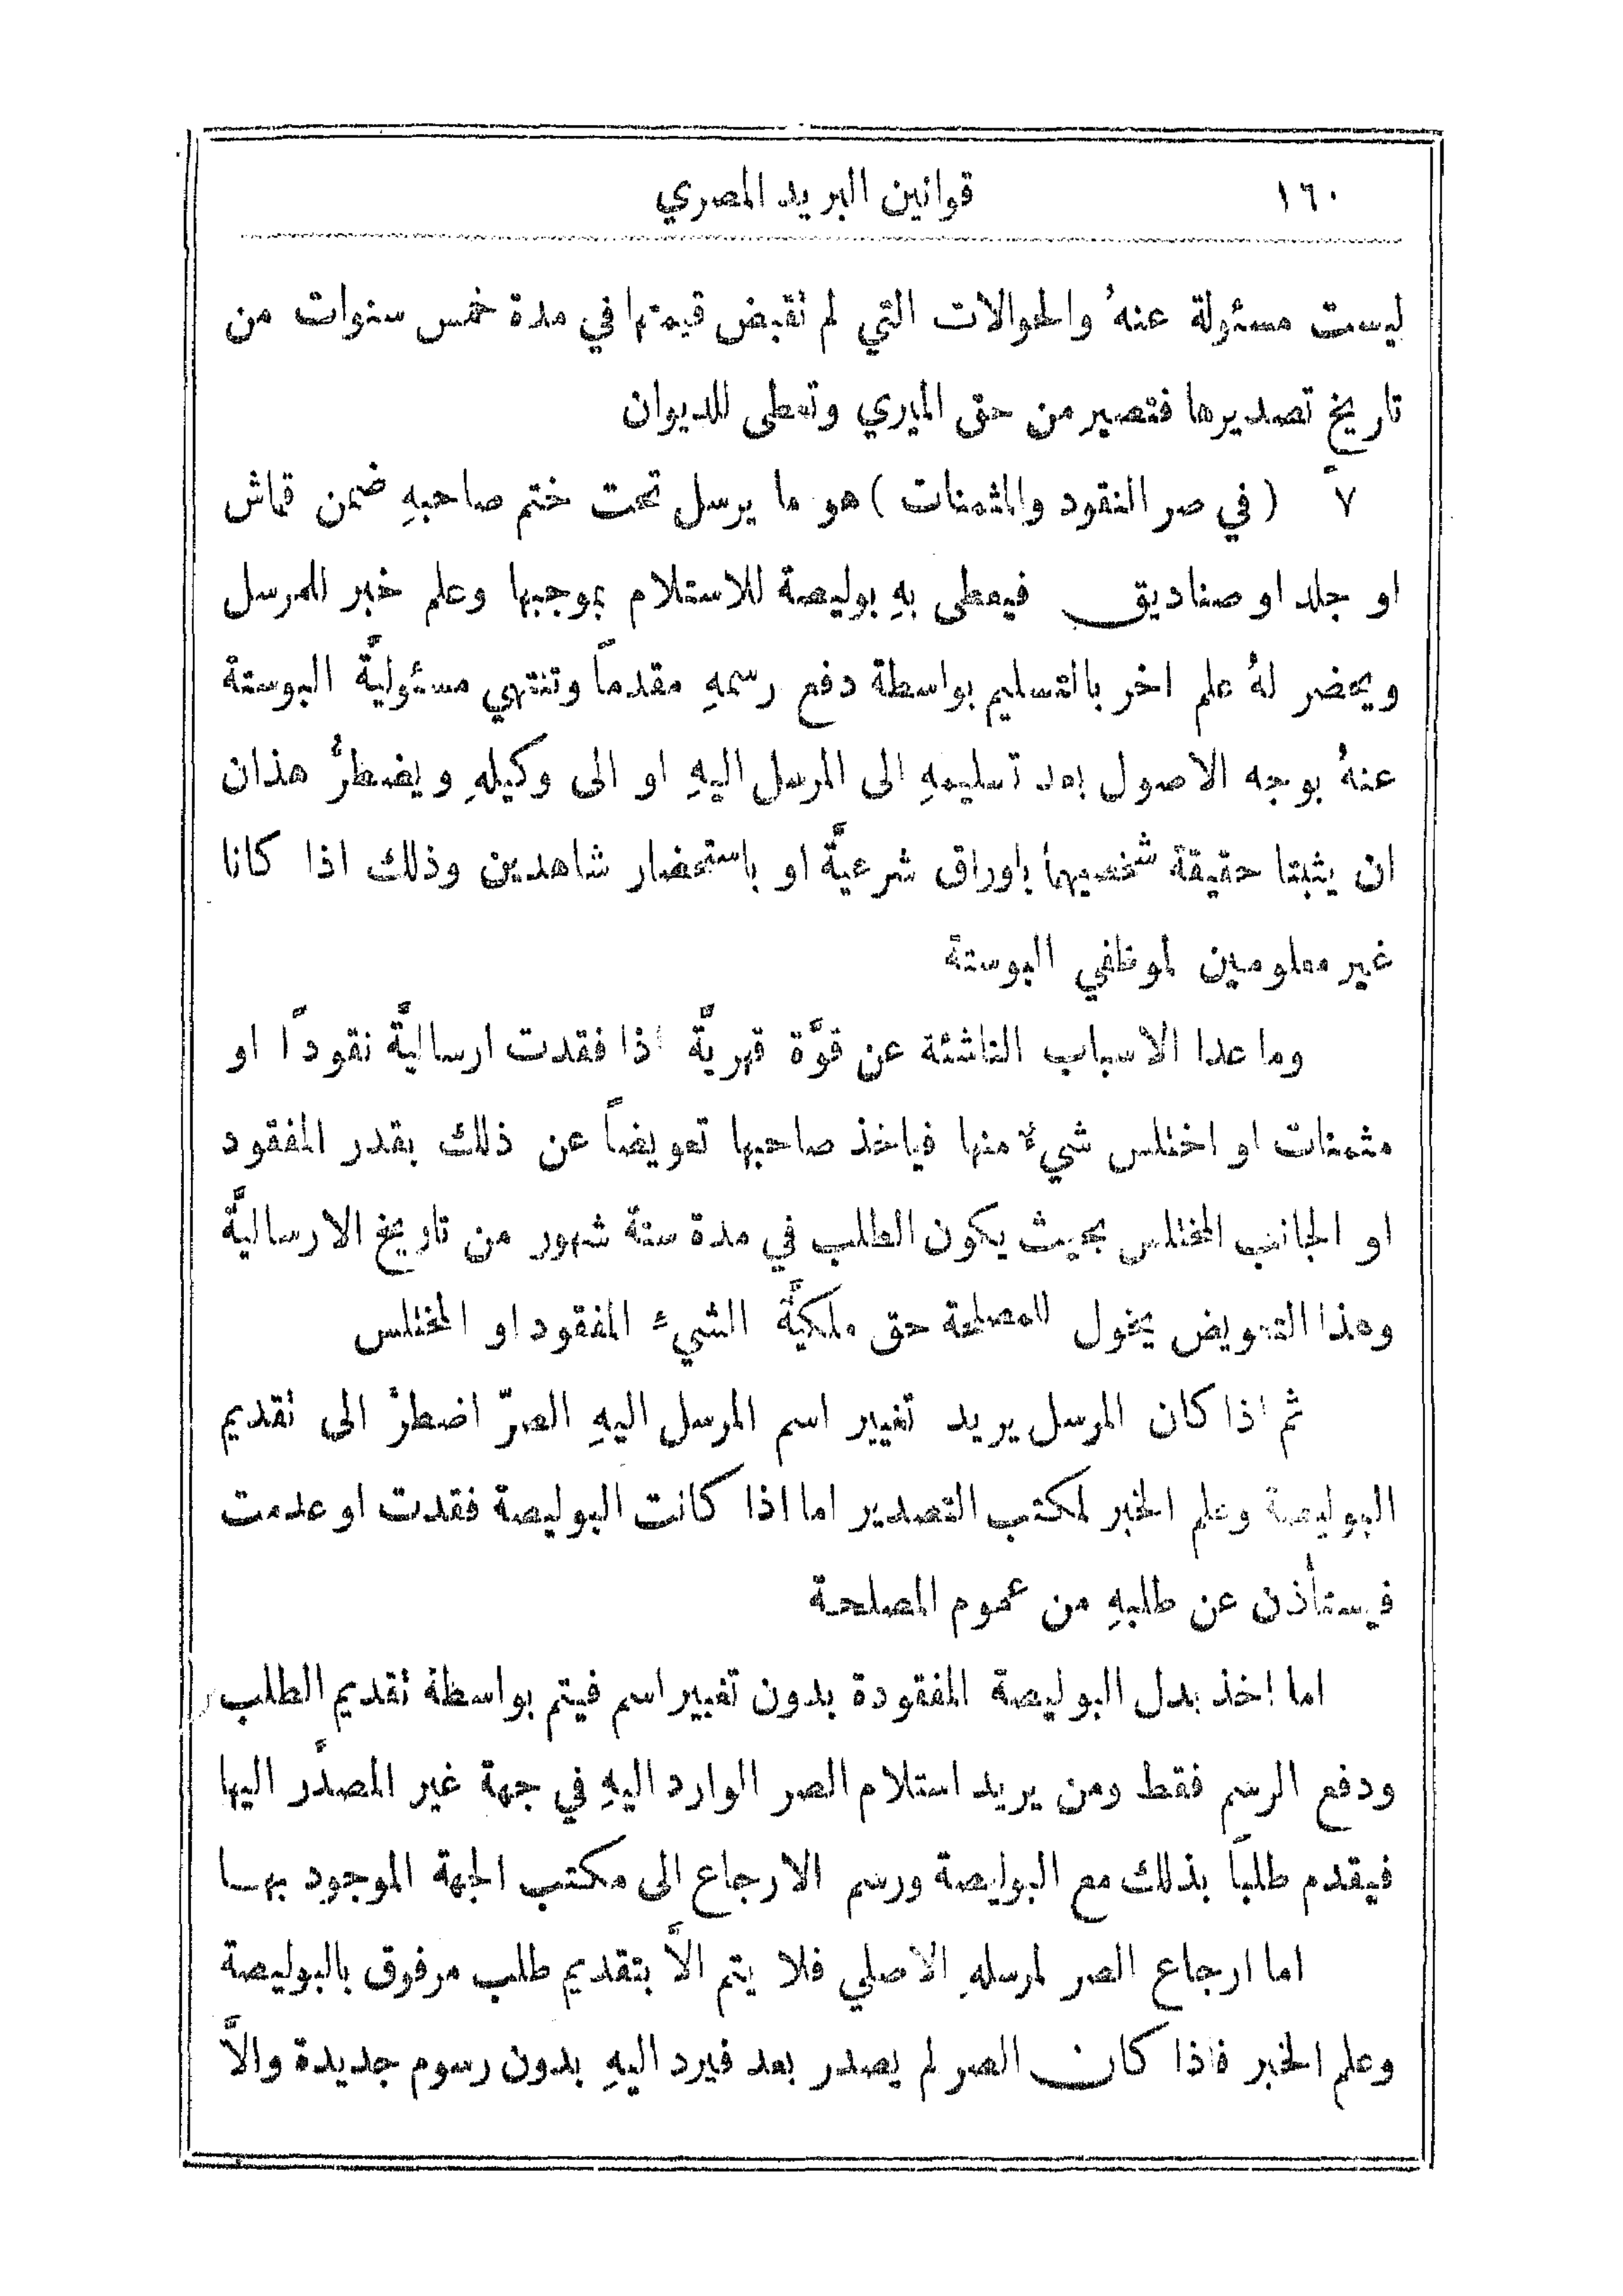 ١٦٠ قوانين البريد المصري
ليست مسئولة عنهُ والحوالات التي لم نقبض قيمتها في مدة خمس سنوات من
تاريخ تصديرها فتصير من حق الميري وتعطى للديوان
٧ (في صر النقود والمثمنات) هو ما يرسل تحت ختم صاحبهِ ضمن قماش
او جلد او صناديق فيعطى بهِ بوليصة للاستلام بموجبها وعلم خبر للمرسل
ويحضر لهُ علم اخر بالتسليم بواسطة دفع رسمهِ مقدماً وتنتهي مسئوليَّة البوستة
عنهُ بوجه الاصول بعد تسليمهِ الى المرسل اليهِ او الى وكيلهِ ويضطرُّ هذان
ان يثبتا حقيقة شخصيهما باوراق شرعيَّة او باستحضار شاهدين وذلك اذا كانا
غير معلومين لموظفي البوستة
وما عدا الاسباب الناشئة عن قوَّة قهريَّة اذا فقدت ارساليَّة نقودًا او
مثمنات او اختلس شيءٌ منها فياخذ صاحبها تعويضاً عن ذلك بقدر المفقود
او الجانب المختلس بحيث يكون الطلب في مدة ستة شهور من تاريخ الارساليَّة
وهذا التعويض يخول للمصلحة حق ملكيَّة الشيء المفقود او المختلس
ثم اذا كان المرسل يريد تغيير اسم المرسل اليهِ الصرّ اضطرَّ الى نقديم
البوليصة وعلم الخبر لمكتب التصدير اما اذا كانت البوليصة فقدت او عدمت
فيستأذن عن طلبهِ من عموم المصلحة
اما اخذ بدل البوليصة المفقودة بدون تغيير اسم فيتم بواسطة نقديم الطلب
ودفع الرسم فقط ومن يريد استلام الصر الوارد اليهِ في جهة غير المصدَّر اليها
فيقدم طلباً بذلك مع البوليصة ورسم الارجاع الى مكتب الجهة الموجود بها
اما ارجاع الصر لمرسلهِ الاصلي فلا يتم الاَّ بتقديم طلب مرفوق بالبوليصة
وعلم الخبر فاذا كان الصر لم يصدر بعد فيرد اليهِ بدون رسوم جديدة والاَّ